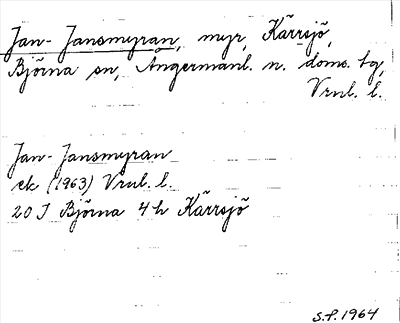 Jan-Jansmyran, myr, Kärrsjö,
Björna sn, Ångermanl. n. doms. tg,
Vrnl. l.
Jan-Jansmyran
ek (1963) Vrnl. l.
20 J Björna 4h Kärrsjö
S.F. 1964